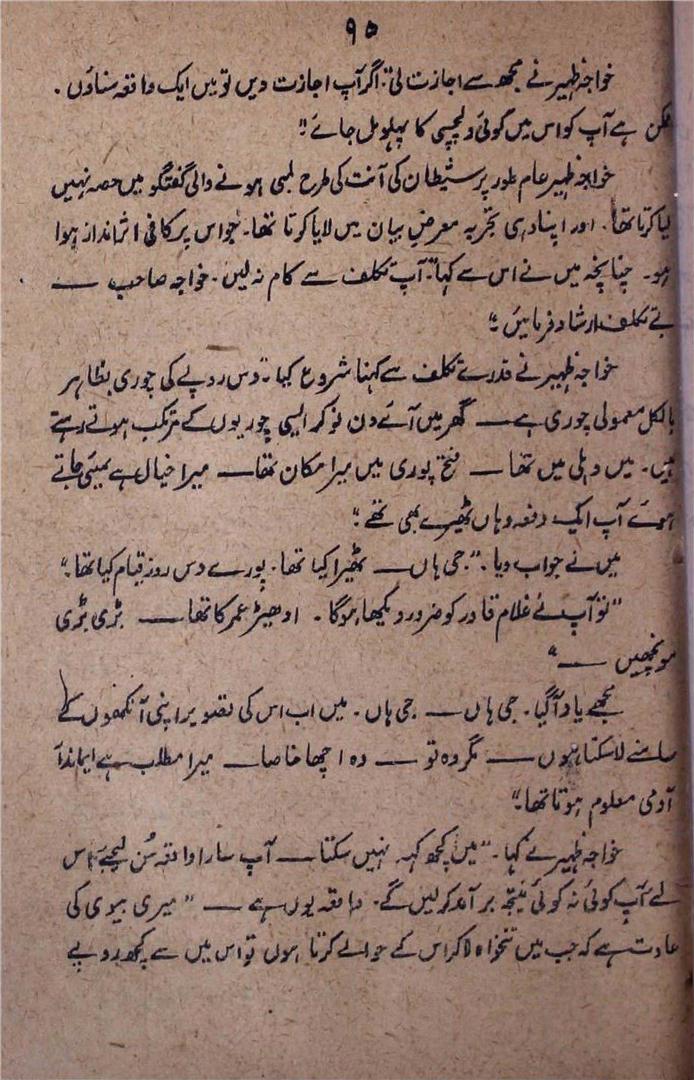 ۹۵
خواجہ ظہیر نے مجھ سے اجازت لی: "اگر آپ اجازت دیں تو میں ایک واقعہ سناؤں۔
ممکن ہے آپ کو اس میں کوئی دلچسپی کا پہلو مل جائے۔"
خواجہ ظہیر عام طور پر شیطان کی آنت کی طرح لمبی ہونے والی گفتگو میں حصہ نہیں
لیا کرتا تھا۔ اور اپنا وہی تجربہ معرضِ بیان میں لایا کرتا تھا۔ جو اس پر کافی اثر انداز ہوا
ہو۔ چنانچہ میں نے اس سے کہا: "آپ تکلف سے کام نہ لیں۔ خواجہ صاحب ——
بے تکلف ارشاد فرمائیں۔"
خواجہ ظہیر نے قدرے تکلف سے کہنا شروع کیا: "دس روپے کی چوری بظاہر
بالکل معمولی چوری ہے —— گھر میں آئے دن نوکر ایسی چوریوں کے مرتکب ہوتے رہتے
ہیں۔ میں دہلی میں تھا —— فتح پوری میں میرا مکان تھا —— میرا خیال ہے بمبئی جاتے
ہوئے آپ ایک دفعہ وہاں ٹھیرے بھی تھے۔"
میں نے جواب دیا۔ "جی ہاں —— ٹھیرا کیا تھا۔ پورے دس روز قیام کیا تھا۔"
"تو آپ نے غلام قادر کو ضرور دیکھا ہوگا۔ ادھیڑ عمر کا تھا —— بڑی بڑی
مونچھیں ——"
مجھے یاد آگیا۔ جی ہاں —— جی ہاں۔ میں اب اس کی تصویر اپنی آنکھوں کے
سامنے لا سکتا ہوں —— مگر وہ تو —— وہ اچھا خاصا —— میرا مطلب ہے ایماندار
آدمی معلوم ہوتا تھا۔"
خواجہ ظہیر نے کہا۔ "میں کچھ کہہ نہیں سکتا —— آپ سارا واقعہ سُن لیجئے، اس
لئے آپ کوئی نہ کوئی نتیجہ برآمد کر لیں گے۔ واقعہ یوں ہے —— "میری بیوی کی
عادت ہے کہ جب میں تنخواہ لا کر اس کے حوالے کرتا ہوں تو اس میں سے کچھ روپے